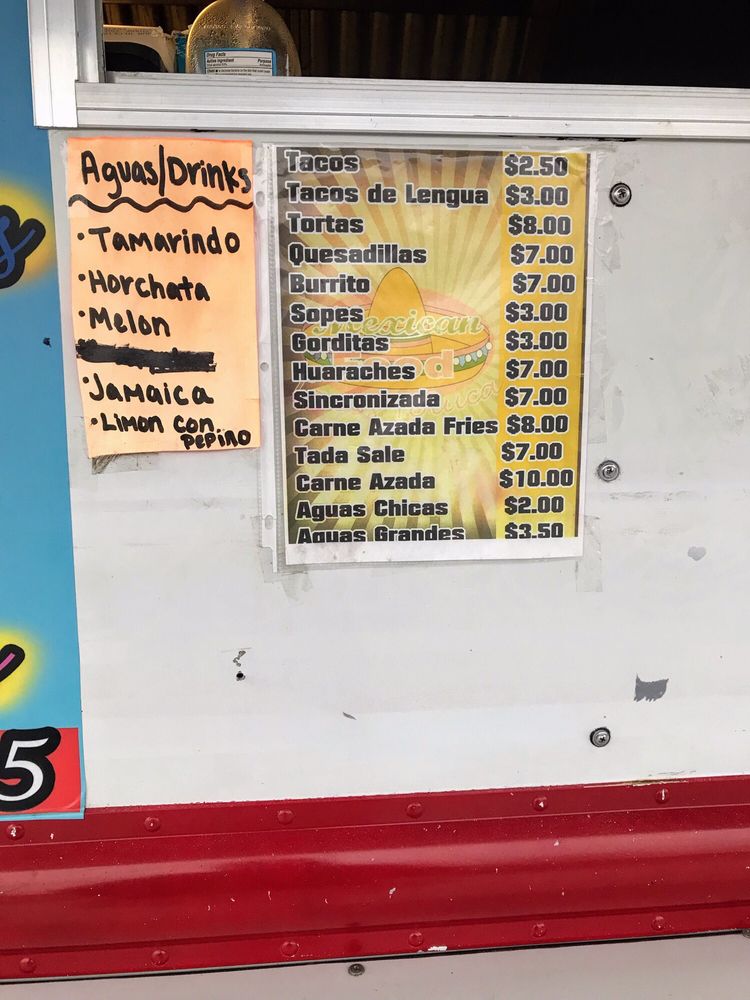 Drug Facts
Active ingredient Purpose
Aguas/Drinks
•Tamarindo
•Horchata
•Melon
•Jamaica
•Limon con
PePino
Tacos $2.50
Tacos de Lengua $3.00
Tortas $8.00
Quesadillas $7.00
Burrito $7.00
Sopes $3.00
Gorditas $3.00
Huaraches $7.00
Sincronizada $7.00
Carne Azada Fries $8.00
Tada Sale $7.00
Carne Azada $10.00
Aguas Chicas $2.00
Aguas Grandes $3.50
Mexican
Food
5